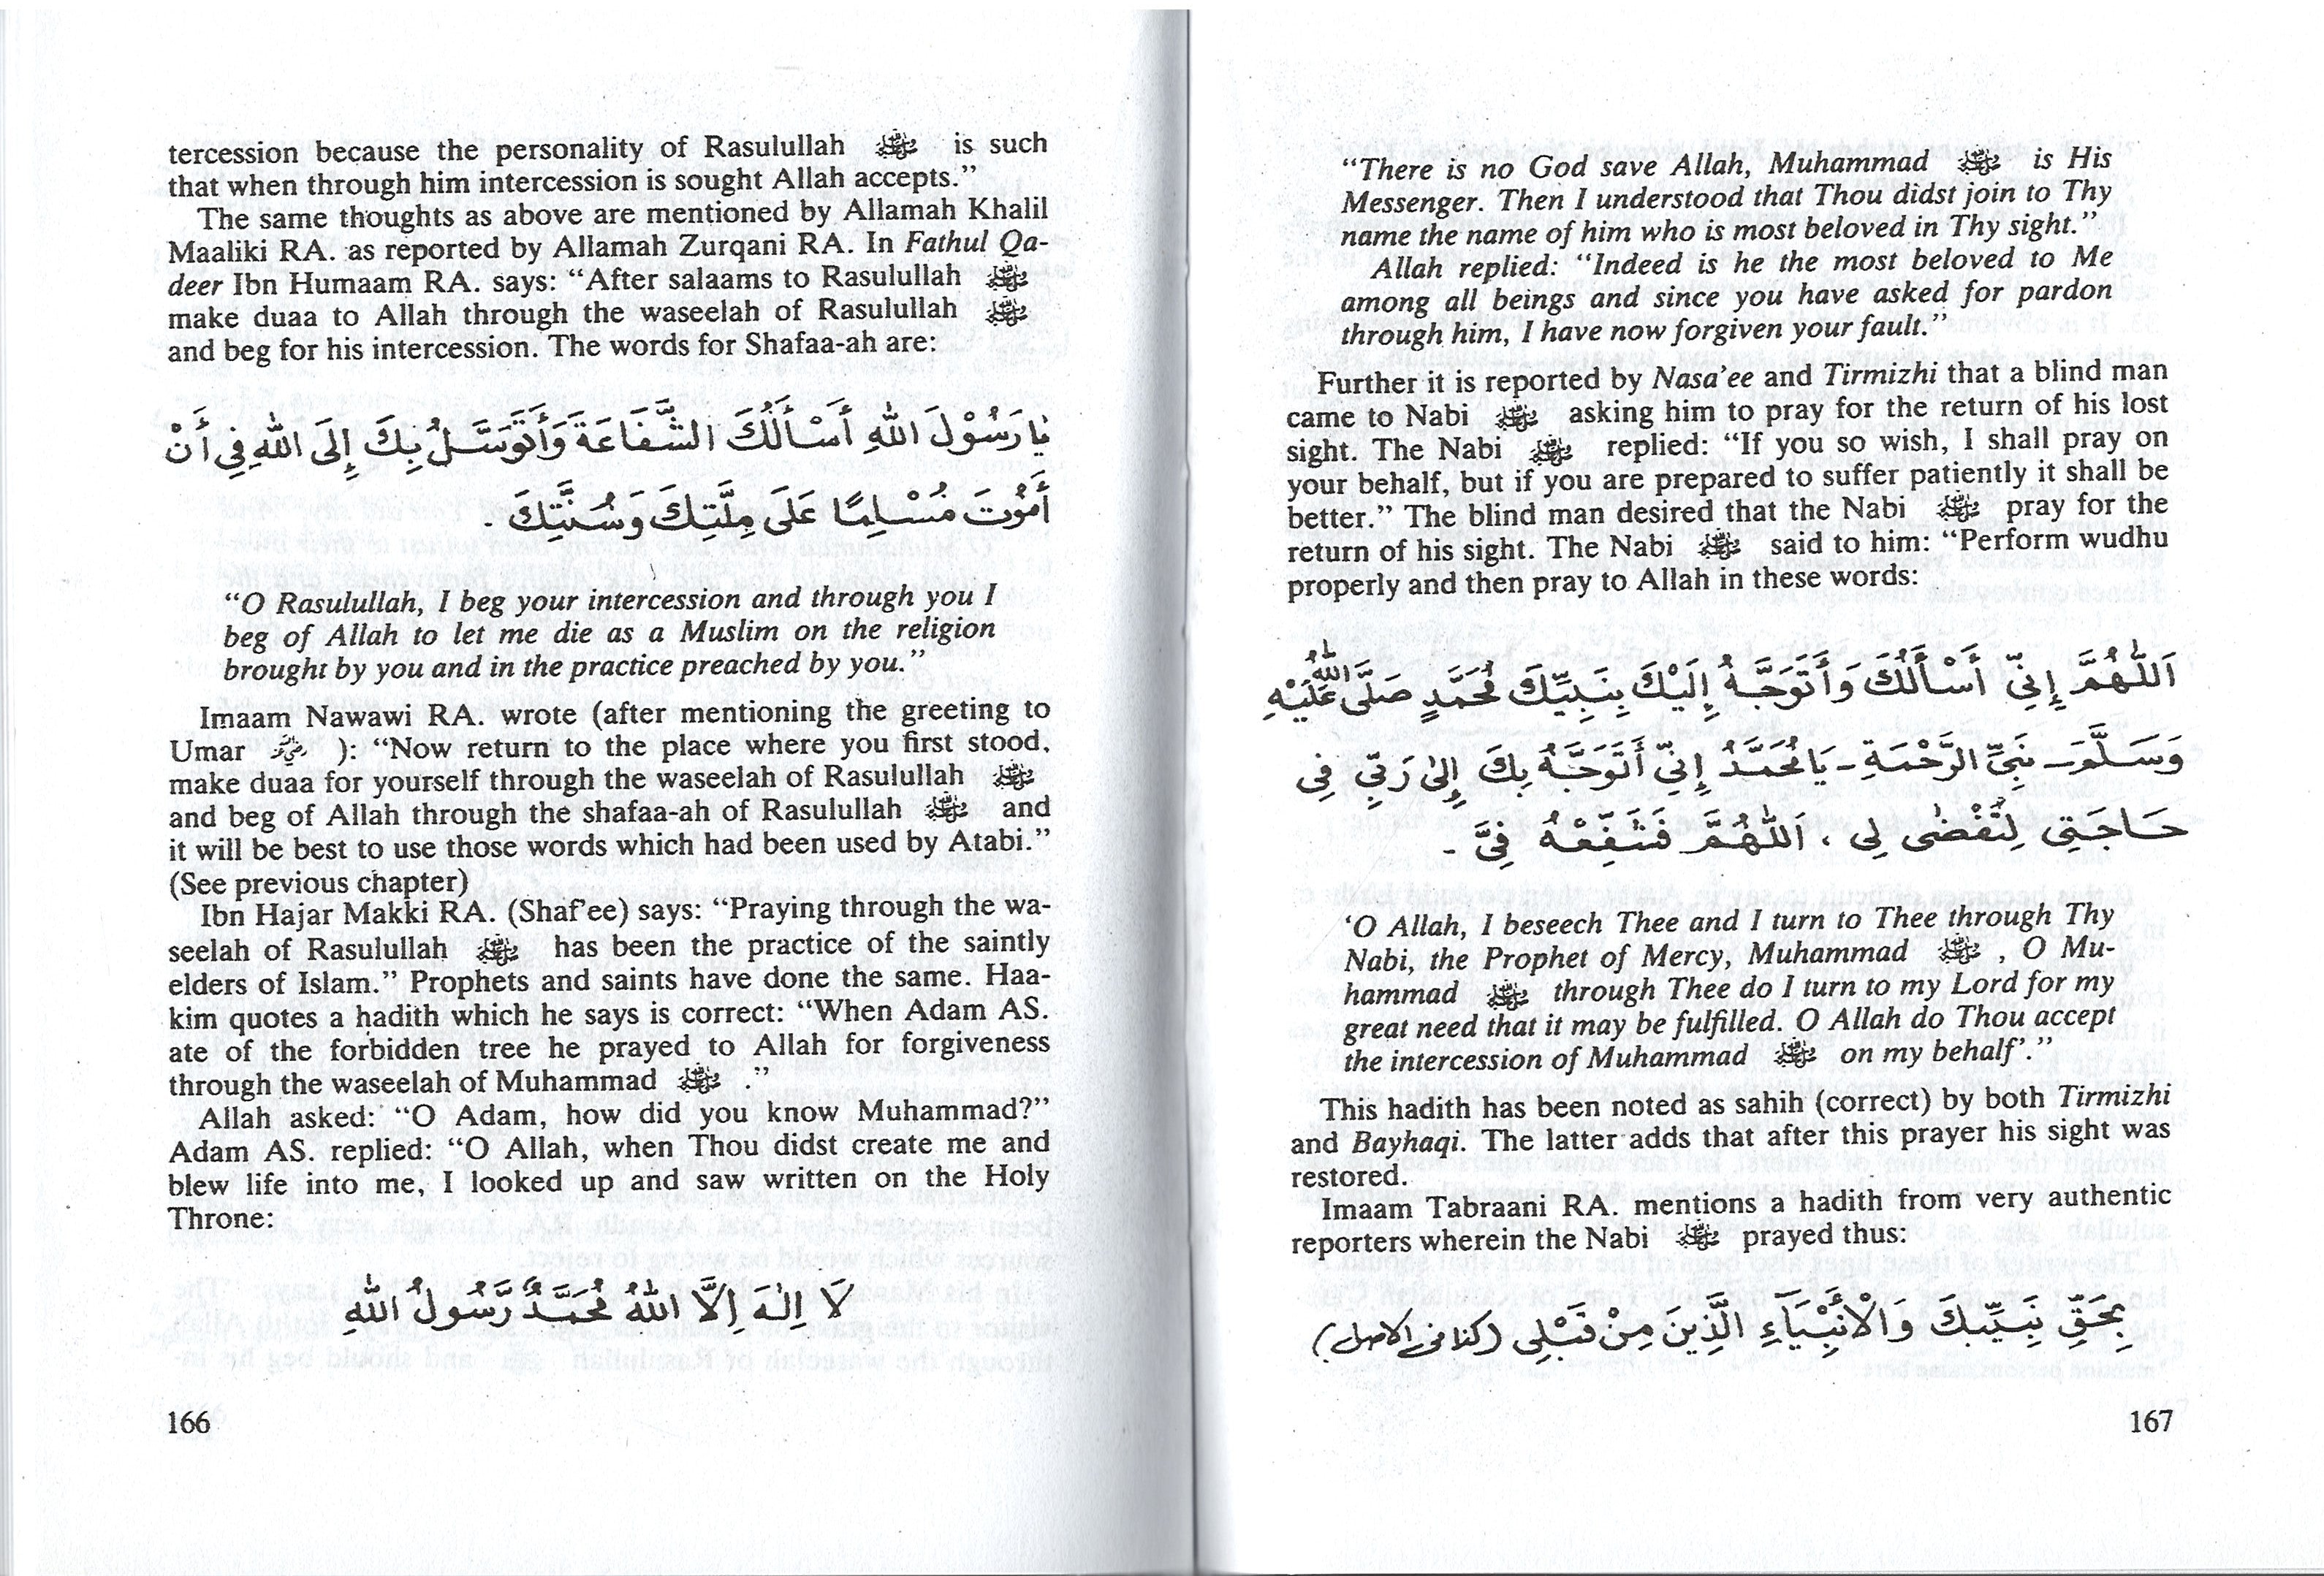 tercession because the personality of Rasulullah ﷺ is such
that when through him intercession is sought Allah accepts.”
The same thoughts as above are mentioned by Allamah Khalil
Maaliki RA. as reported by Allamah Zurqani RA. In Fathul Qa-
deer Ibn Humaam RA. says: “After salaams to Rasulullah ﷺ
make duaa to Allah through the waseelah of Rasulullah ﷺ
and beg for his intercession. The words for Shafaa-ah are:
يَا رَسُوْلَ اللهِ أَسْأَلُكَ الشَّفَاعَةَ وَأَتَوَسَّلُ بِكَ إِلَى اللهِ فِي أَنْ
أَمُوْتَ مُسْلِمًا عَلَى مِلَّتِكَ وَسُنَّتِكَ .
“O Rasulullah, I beg your intercession and through you I
beg of Allah to let me die as a Muslim on the religion
brought by you and in the practice preached by you.”
Imaam Nawawi RA. wrote (after mentioning the greeting to
Umar رضي الله عنه ): “Now return to the place where you first stood,
make duaa for yourself through the waseelah of Rasulullah ﷺ
and beg of Allah through the shafaa-ah of Rasulullah ﷺ and
it will be best to use those words which had been used by Atabi.”
(See previous chapter)
Ibn Hajar Makki RA. (Shaf’ee) says: “Praying through the wa-
seelah of Rasulullah ﷺ has been the practice of the saintly
elders of Islam.” Prophets and saints have done the same. Haa-
kim quotes a hadith which he says is correct: “When Adam AS.
ate of the forbidden tree he prayed to Allah for forgiveness
through the waseelah of Muhammad ﷺ .”
Allah asked: “O Adam, how did you know Muhammad?”
Adam AS. replied: “O Allah, when Thou didst create me and
blew life into me, I looked up and saw written on the Holy
Throne:
لَا اِلٰهَ اِلَّا اللهُ مُحَمَّدٌ رَّسُولُ اللهِ
166
“There is no God save Allah, Muhammad ﷺ is His
Messenger. Then I understood that Thou didst join to Thy
name the name of him who is most beloved in Thy sight.”
Allah replied: “Indeed is he the most beloved to Me
among all beings and since you have asked for pardon
through him, I have now forgiven your fault.”
Further it is reported by Nasa’ee and Tirmizhi that a blind man
came to Nabi ﷺ asking him to pray for the return of his lost
sight. The Nabi ﷺ replied: “If you so wish, I shall pray on
your behalf, but if you are prepared to suffer patiently it shall be
better.” The blind man desired that the Nabi ﷺ pray for the
return of his sight. The Nabi ﷺ said to him: “Perform wudhu
properly and then pray to Allah in these words:
اَللّٰهُمَّ إِنِّي أَسْأَلُكَ وَأَتَوَجَّهُ إِلَيْكَ بِنَبِيِّكَ مُحَمَّدٍ صَلَّى اللهُ عَلَيْهِ
وَسَلَّمَ - نَبِيِّ الرَّحْمَةِ - يَا مُحَمَّدُ إِنِّي أَتَوَجَّهُ بِكَ إِلَى رَبِّي فِي
حَاجَتِي لِتُقْضٰى لِي ، اَللّٰهُمَّ فَشَفِّعْهُ فِيَّ .
‘O Allah, I beseech Thee and I turn to Thee through Thy
Nabi, the Prophet of Mercy, Muhammad ﷺ , O Mu-
hammad ﷺ through Thee do I turn to my Lord for my
great need that it may be fulfilled. O Allah do Thou accept
the intercession of Muhammad ﷺ on my behalf’.”
This hadith has been noted as sahih (correct) by both Tirmizhi
and Bayhaqi. The latter adds that after this prayer his sight was
restored.
Imaam Tabraani RA. mentions a hadith from very authentic
reporters wherein the Nabi ﷺ prayed thus:
بِحَقِّ نَبِيِّكَ وَالْأَنْبِيَاءِ الَّذِينَ مِنْ قَبْلِي (كذا في الاصل)
167